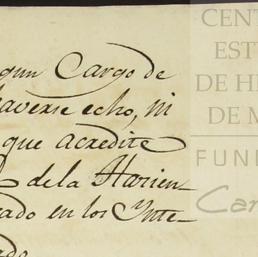 gun Cargo de
haverse echo, ni
que acredite
de la Harien_
ado en los Ynte_
ado
CENT
EST
DE H
DE M
FUN
Car